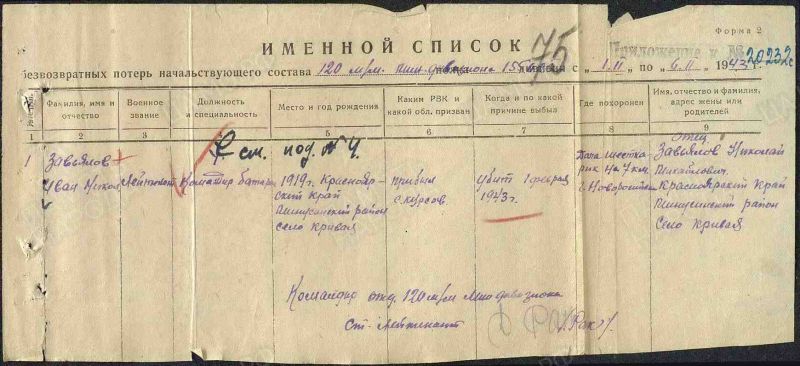 Форма 2
75
Приложение к № 20232с
ИМЕННОЙ СПИСОК
безвозвратных потерь начальствующего состава 120 м/м. мин. дивизиона 155 с „1.II по „4.II 1943 г.
Фамилия, имя и отчество
Военное звание
Должность и специальность
Место и год рождения
Каким РВК и какой обл. призван
Когда и по какой причине выбыл
Где похоронен
Имя, отчество и фамилия, адрес жены или родителей
1 2 3 4 5 6 7 8 9
см. под. № 4.
1
Завьялов
Иван Никол
Лейтенант
Командир батареи
1919 г. Краснояр-
ский край
район
село Кривая
прибыл
с курсов
Убит 1 февраля
1943 г.
на 7 км.
г. Новороссийск
отец
Завьялов Николай
Михайлович.
Красноярский край
район
Село Кривая
Командир отд. 120 м/м мин дивизиона
Ст. Лейтенант